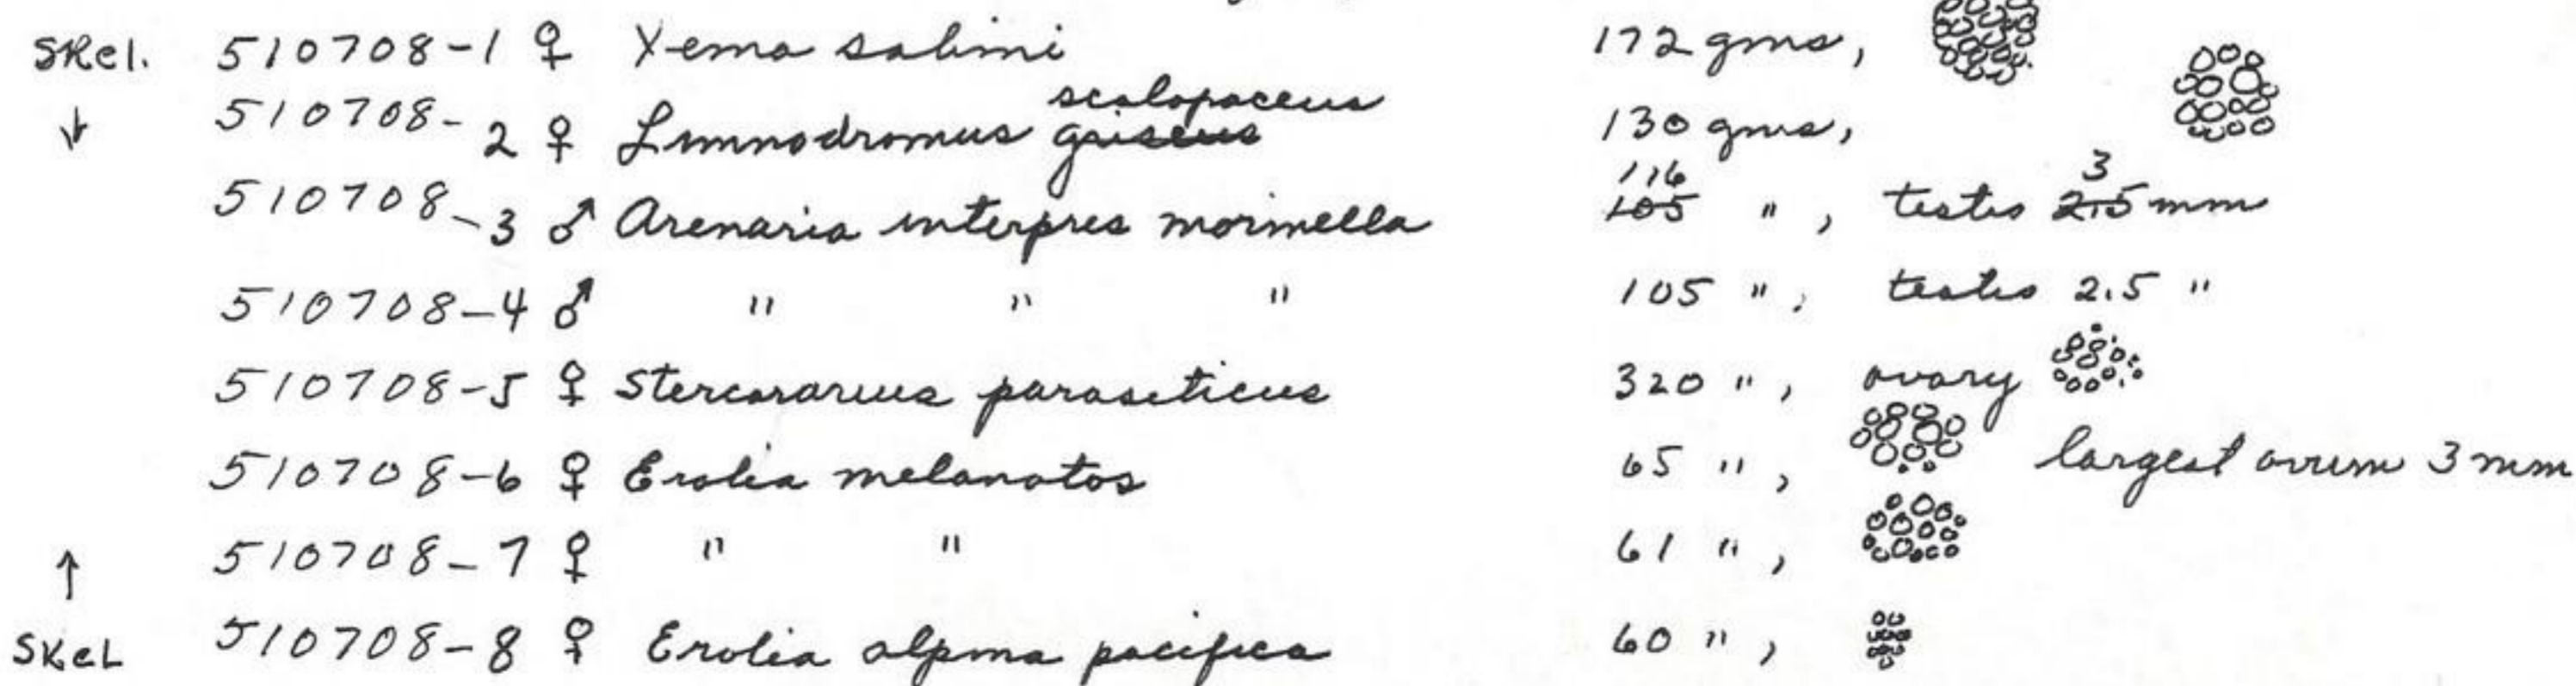 Skel. 510708-1 ♀ Xema sabini 172 gms,
scolopaceus
↓ 510708-2 ♀ Limnodromus griseus 130 gms,
116 3
510708-3 ♂ Arenaria interpres morinella 105 " , testis 2.5 mm
510708-4 ♂ " " " 105 " , testis 2.5 "
510708-5 ♀ Stercorarius parasiticus 320 " , ovary
510708-6 ♀ Erolia melanotos 65 " , largest ovum 3 mm
↑ 510708-7 ♀ " " 61 " ,
Skel 510708-8 ♀ Erolia alpina pacifica 60 " ,